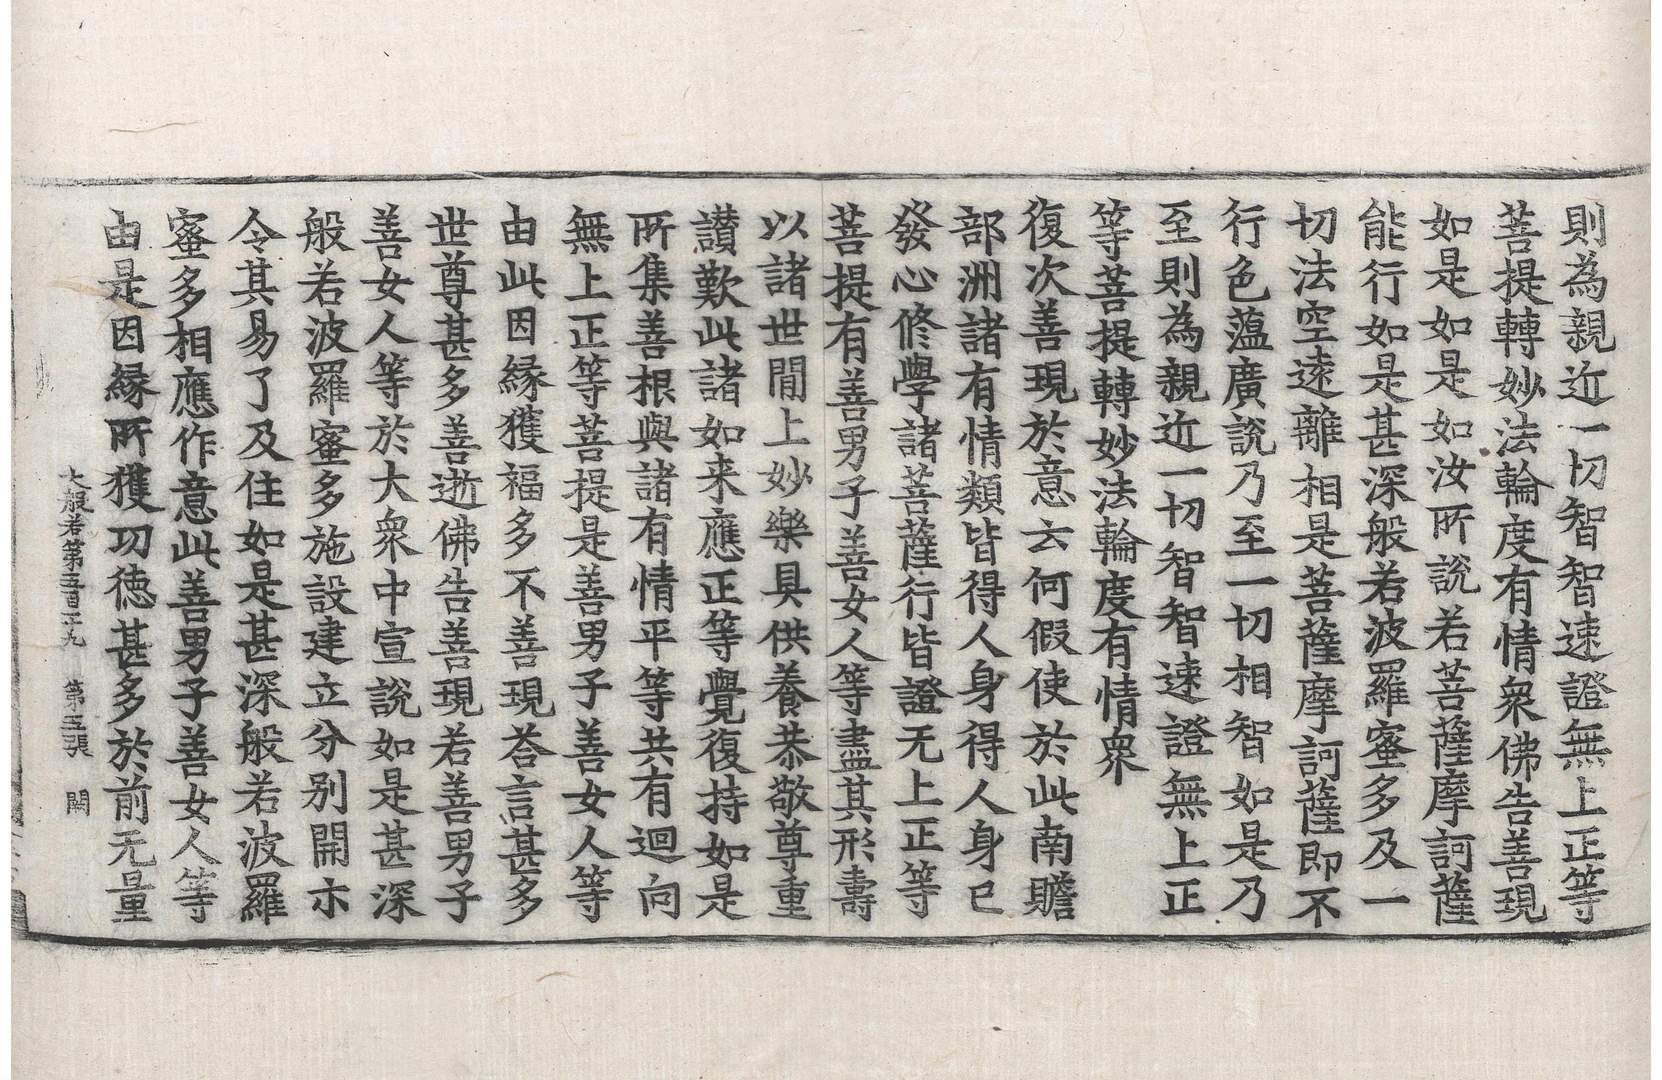 則為親近一切智智速證無上正等
菩提轉妙法輪度有情衆佛告善現
如是如是如汝所說若菩薩摩訶薩
能行如是甚深般若波羅蜜多及一
切法空遠離相是菩薩摩訶薩即不
行色蘊廣說乃至一切相智如是乃
至則為親近一切智智速證無上正
等菩提轉妙法輪度有情衆
復次善現於意云何假使於此南贍
部洲諸有情類皆得人身得人身已
發心修學諸菩薩行皆證无上正等
菩提有善男子善女人等盡其形壽
以諸世間上妙樂具供養恭敬尊重
讃歎此諸如来應正等覺復持如是
所集善根與諸有情平等共有迴向
無上正等菩提是善男子善女人等
由此因縁獲福多不善現荅言甚多
世尊甚多善逝佛告善現若善男子
善女人等於大衆中宣說如是甚深
般若波羅蜜多施設建立分别開示
令其易了及住如是甚深般若波羅
蜜多相應作意此善男子善女人等
由是因縁所獲功德甚多於前无量
大般若第五百二十九　第五張　閎